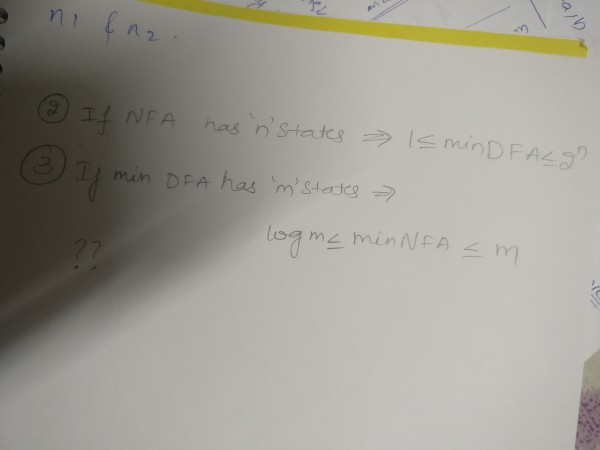 n1 & n2.
② If NFA has 'n' states ⇒ 1 ≤ minDFA ≤ 2ⁿ
③ If min DFA has 'm' states ⇒
log m ≤ minNFA ≤ m
??